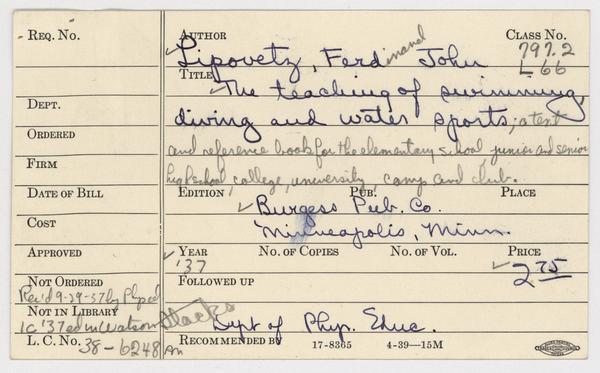 Req. No.
Author
Class No.
Lipovetz, Ferdinand John
797.2
L66
Title
The teaching of swimming,
diving and water sports; a text
and reference book for the elementary school, junior and senior
high school, college, university, camp and club.
Dept.
Ordered
Firm
Date of Bill
Edition
Pub.
Place
Burgess Pub. Co.
Minneapolis, Minn.
Cost
Approved
Year
No. of Copies
No. of Vol.
Price
'37
2 75
Not Ordered
Followed up
Rec'd 9-29-37 by Phy ed
Not in Library
1c '37 ed in Watson Stacks
Dept of Phys. Educ.
L. C. No. 38-6248
Recommended by
17-8365
4-39—15M